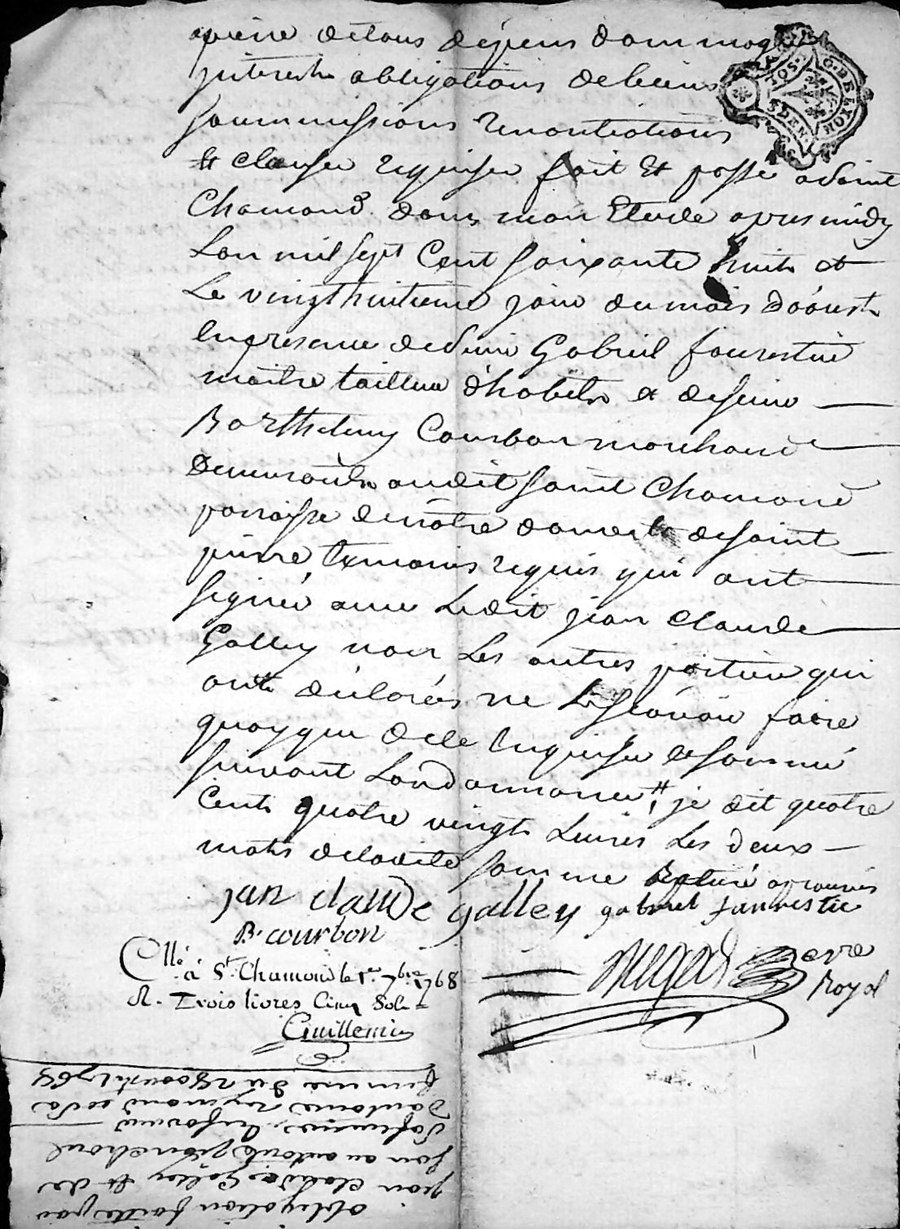 apeine detous depens dommages
jnterests obligations debiens
soummissions renontiations
Et clauses requises fait Et passé asaint
Chamond dans mon Etude apres midy
Lan mil sept Cent soixante huit et
Le vingthuitieme jour dumois d'aoust
En presence desieur Gabriel fourestier
maitre tailleur d'habits et desieur
Barthelemy Courbon marchand
demeurants audit saint Chamond
paroisse denotre dame et desaint
pierre temoins requis qui ont
signé avec Ledit jean claude
Galley non Les autres parties qui
ont déclarés ne Le sçavoir faire
quoyque dece Enquises et sommé
suivant Lordonnance, je dit quatre
Cents quatre vingts Livres Les deux
mots deladite somme approuvés
jan claude galley gabriel faurestie
B. courbon
Cllé à St. Chamond le 1er. 7bre 1768
R. Trois livres Cinq Sols
Guillemin
nore
Royal
G. DE LYON
SOL
DEN
obligation faitte par
jean claude Galley Et de
son autorité
Antoine reymond et sa
femme du 28 aoust 1768